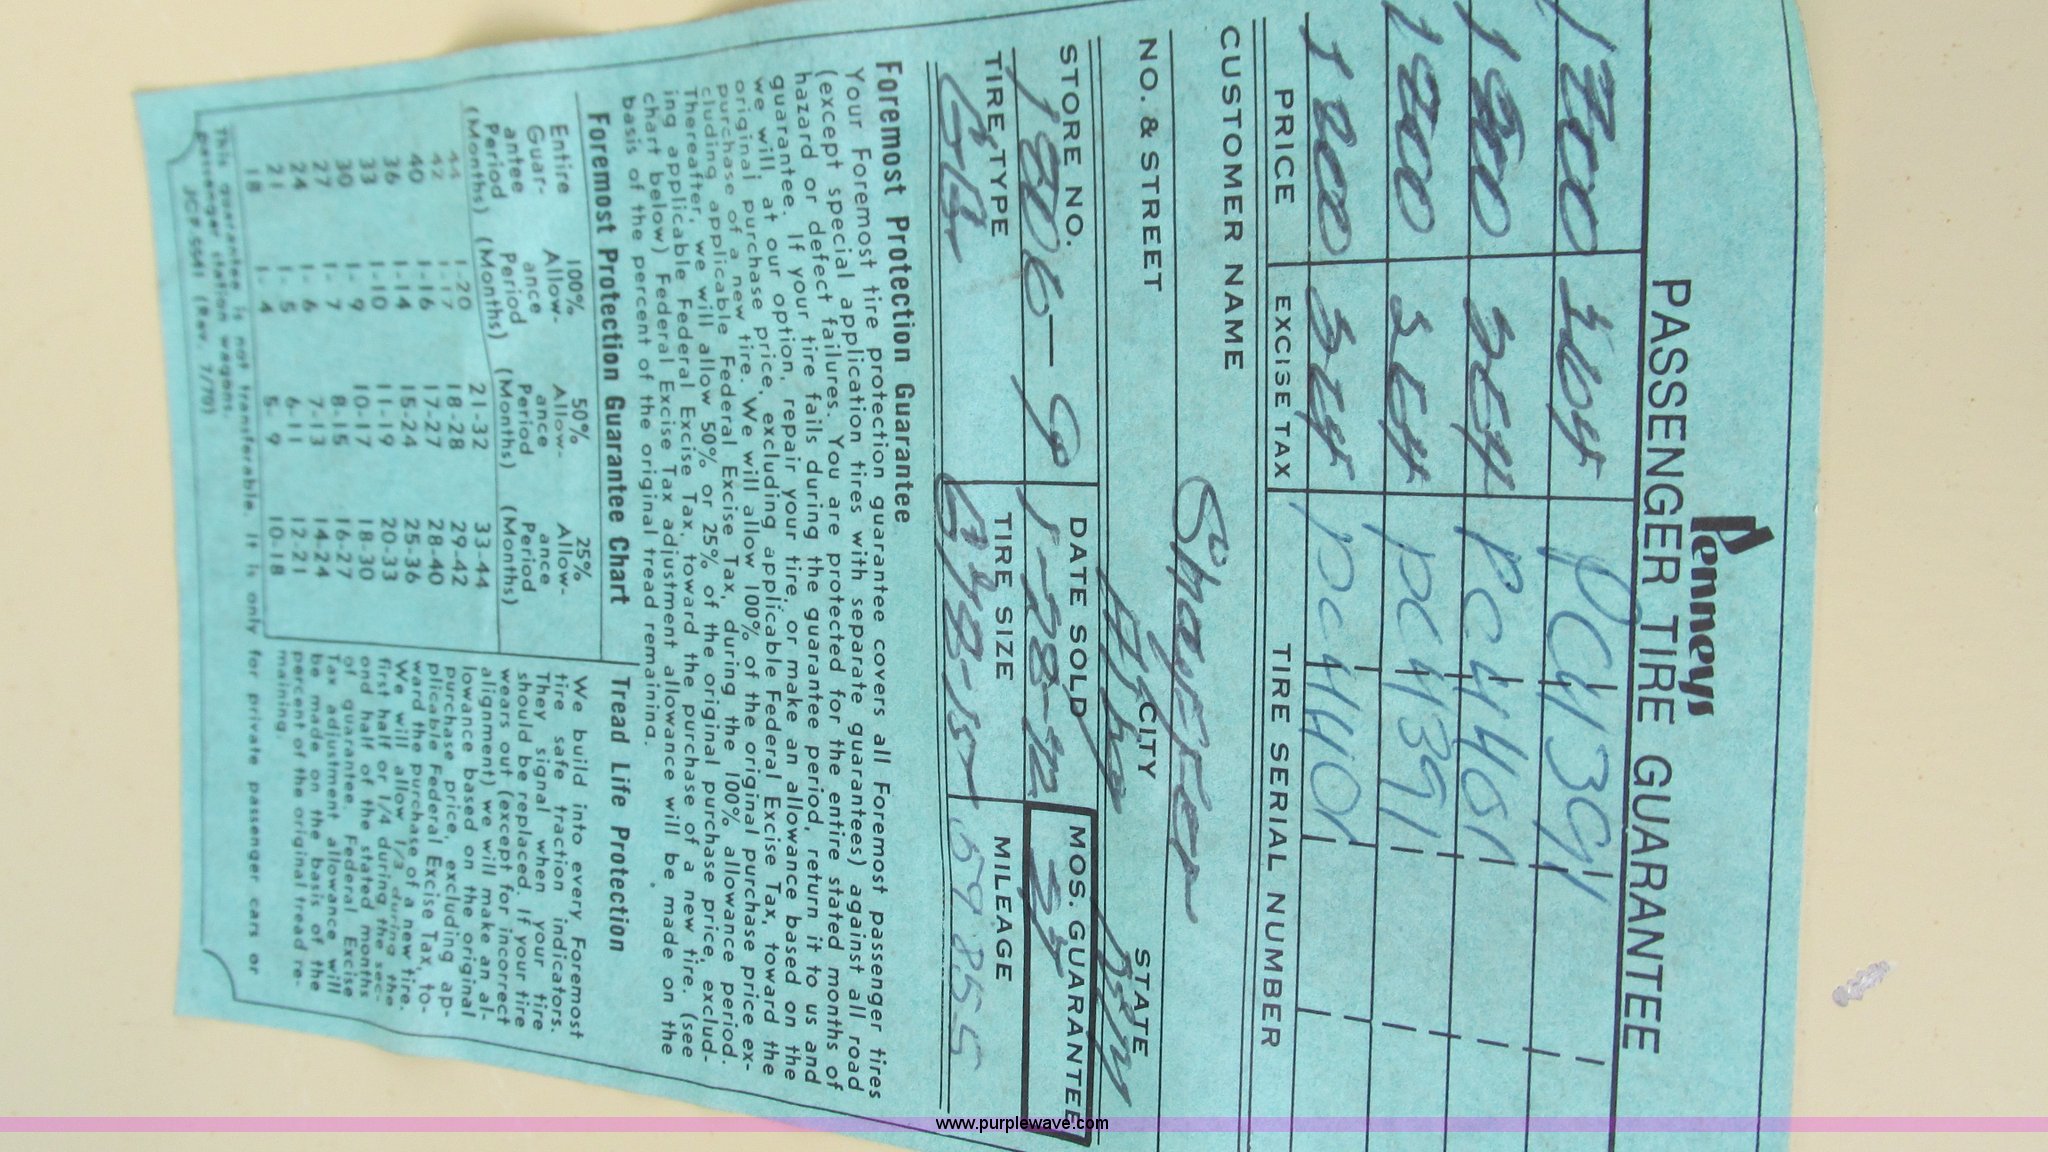 Penneys
PASSENGER TIRE GUARANTEE
1800 PC4 1391
1800 PC4 4101
1800 PC4 4391
1800 PC4 4101
PRICE EXCISE TAX TIRE SERIAL NUMBER
CUSTOMER NAME
Shaffer
NO. & STREET CITY STATE
STORE NO. DATE SOLD MOS. GUARANTEE
1806-9 1-28-72
TIRE TYPE TIRE SIZE MILEAGE
G78-15 59855
Foremost Protection Guarantee
Your Foremost tire protection guarantee covers all Foremost passenger tires
(except special application tires with separate guarantees) against all road
hazard or defect failures. You are protected for the entire stated months of
guarantee. If your tire fails during the guarantee period, return it to us and
we will, at our option, repair your tire, or make an allowance based on the
original purchase price, excluding applicable Federal Excise Tax, toward the
purchase of a new tire. We will allow 100% of the original purchase price ex-
cluding applicable Federal Excise Tax, during the 100% allowance period.
Thereafter, we will allow 50% or 25% of the original purchase price, exclud-
ing applicable Federal Excise Tax, toward the purchase of a new tire. (see
chart below) Federal Excise Tax adjustment allowance will be made on the
basis of the percent of the original tread remaining.
Foremost Protection Guarantee Chart
Entire 100% 50% 25%
Guar- Allow- Allow- Allow-
antee ance ance ance
Period Period Period Period
(Months) (Months) (Months) (Months)
44 1-20 21-32 33-44
42 1-17 18-28 29-42
40 1-16 17-27 28-40
36 1-14 15-24 25-36
33 1-10 11-19 20-33
30 1- 9 10-17 18-30
27 1- 7 8-15 16-27
24 1- 6 7-13 14-24
21 1- 5 6-11 12-21
18 1- 4 5- 9 10-18
Tread Life Protection
We build into every Foremost
tire safe traction indicators.
They signal when your tire
should be replaced. If your tire
wears out (except for incorrect
alignment) we will make an al-
lowance based on the original
purchase price, excluding ap-
plicable Federal Excise Tax, to-
ward the purchase of a new tire.
We will allow 1/3 during the
first half or 1/4 during the sec-
ond half of the stated months
of guarantee. Federal Excise
Tax adjustment allowance will
be made on the basis of the
percent of the original tread re-
maining.
This guarantee is not transferable. It is only for private passenger cars or
passenger station wagons.
JCP-5641 (Rev. 7/70)
www.purplewave.com